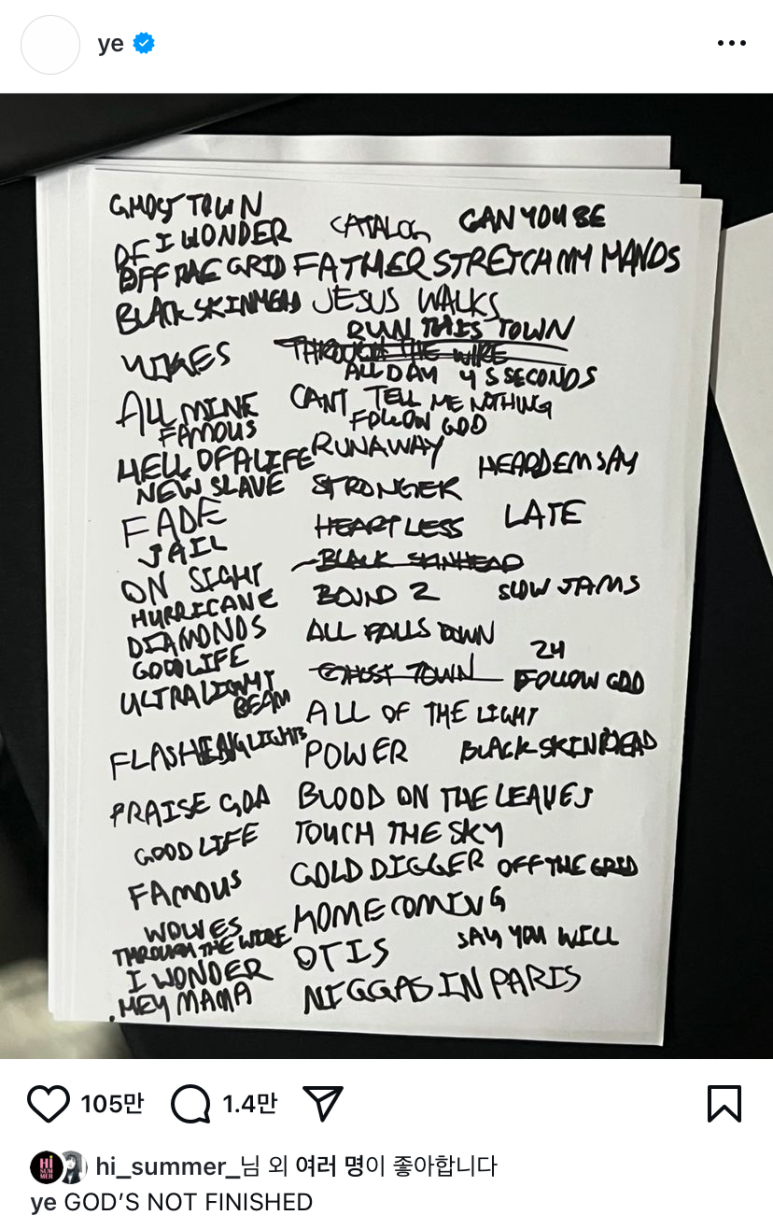 ye
GHOST TOWN
I WONDER CATALOG CAN YOU BE
OFF THE GRID FATHER STRETCH MY HANDS
BLACK SKINHEAD JESUS WALKS
RUN THIS TOWN
YIKES THROUGH THE WIRE
ALL DAY 4 5 SECONDS
ALL MINE CANT TELL ME NOTHING
FAMOUS FOLLOW GOD
HELL OF A LIFE RUNAWAY HEARD EM SAY
NEW SLAVE STRONGER
FADE HEARTLESS LATE
JAIL
ON SIGHT BLACK SKINHEAD
HURRICANE BOUND 2 SLOW JAMS
DIAMONDS ALL FALLS DOWN
GOOD LIFE 24
ULTRALIGHT GHOST TOWN FOLLOW GOD
BEAM ALL OF THE LIGHT
FLASHING LIGHTS POWER BLACK SKINHEAD
PRAISE GOD BLOOD ON THE LEAVES
GOOD LIFE TOUCH THE SKY
FAMOUS GOLD DIGGER OFF THE GRID
WOLVES HOMECOMING
THROUGH THE WIRE OTIS SAY YOU WILL
I WONDER
HEY MAMA NIGGAS IN PARIS
105만 1.4만
hi_summer_님 외 여러 명이 좋아합니다
ye GOD'S NOT FINISHED